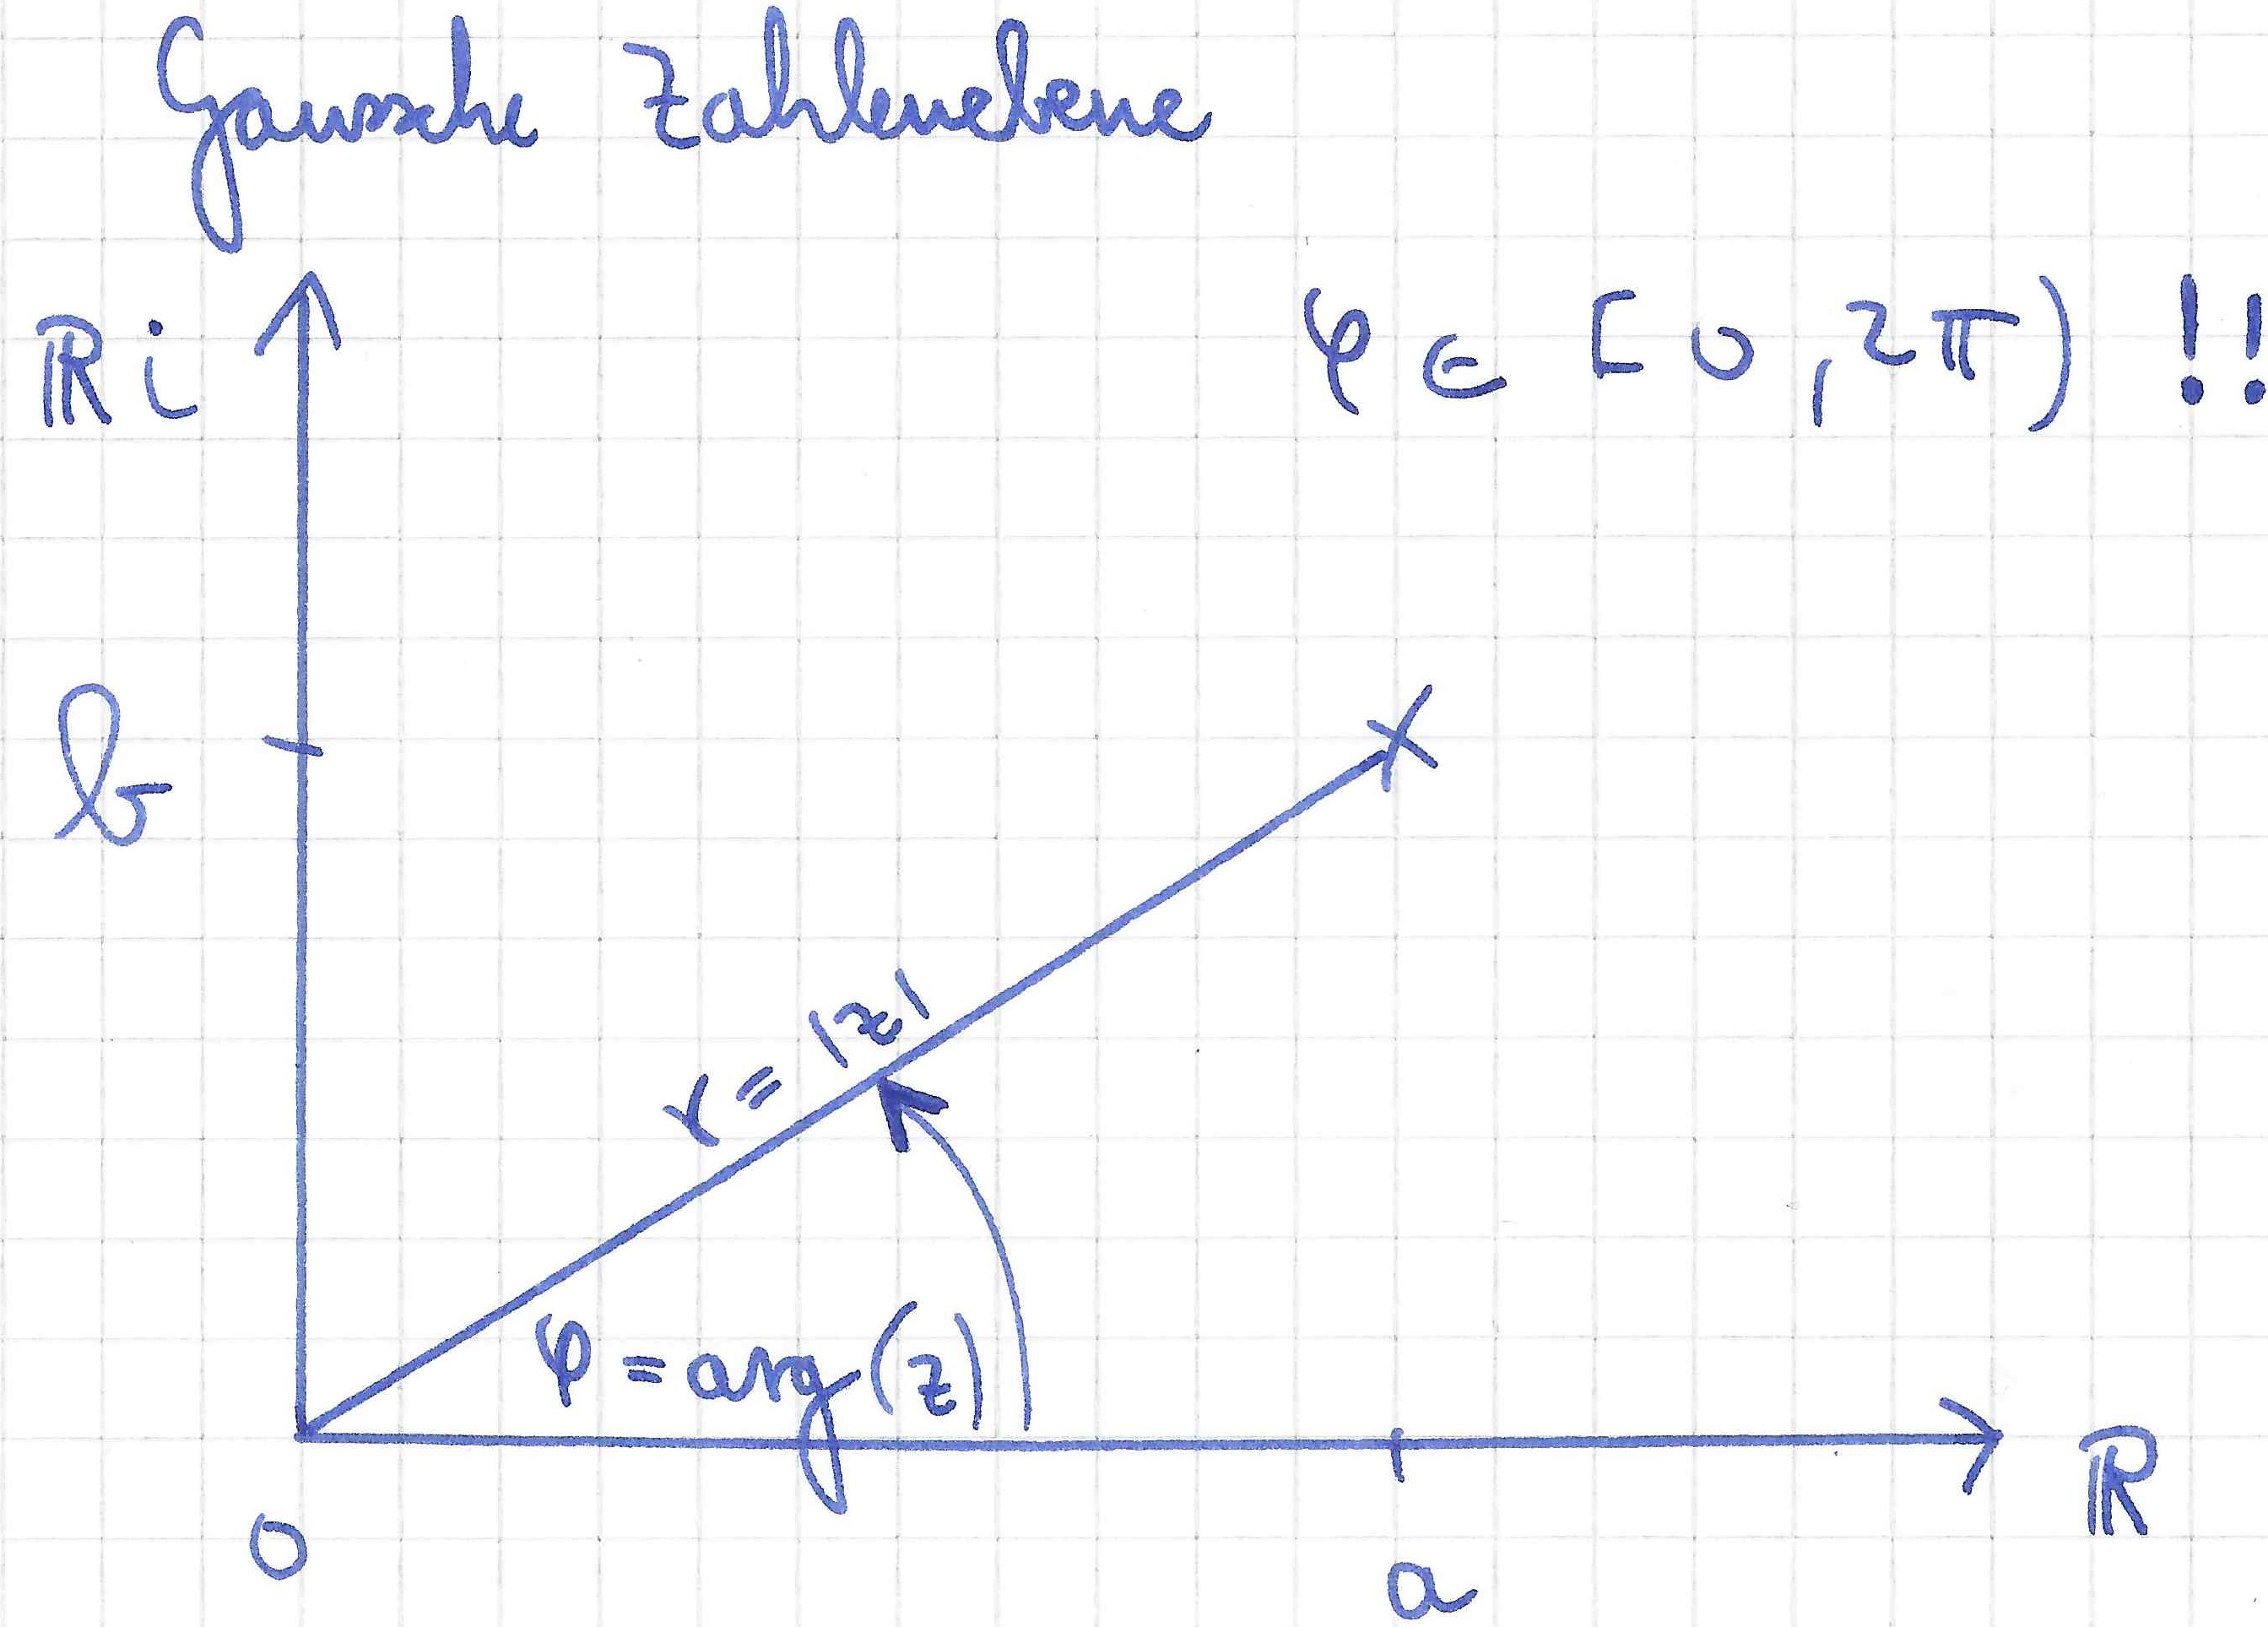 Gaussche Zahlenebene
ℝi
φ ∈ [0, 2π) !!
b
r = |z|
φ = arg(z)
ℝ
0
a